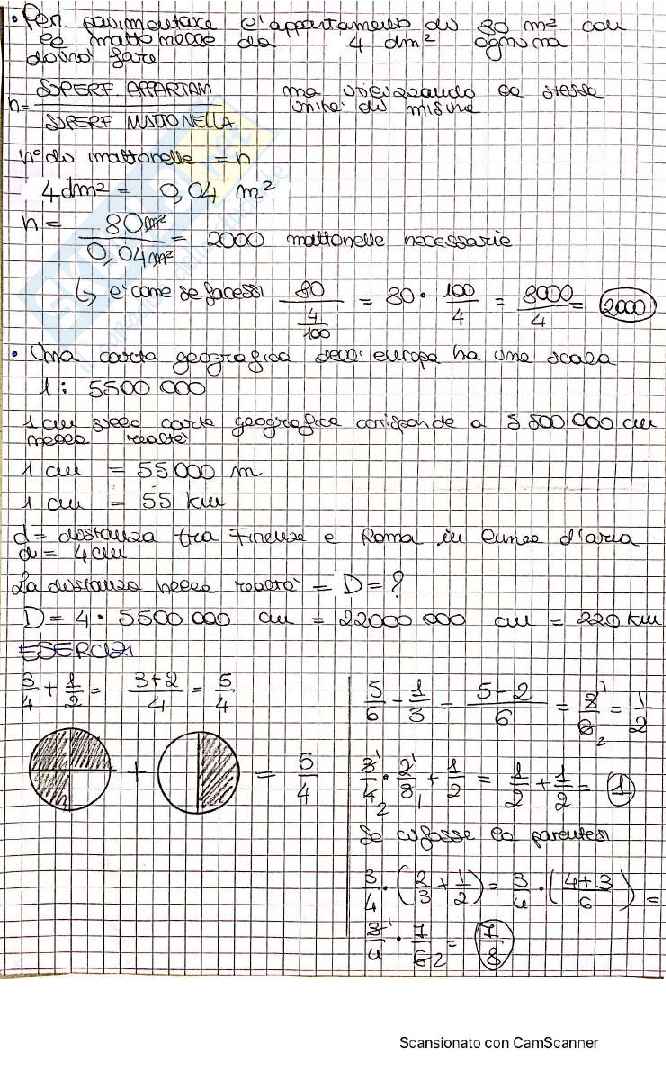 • Per pavimentare l'appartamento di 80 m² con
le mattonelle da 4 dm² ognuna
dovrò fare
n = SUPERF. APPARTAM / SUPERF MATTONELLA ma utilizzando la stessa
unità di misura
N° di mattonelle = n
4 dm² = 0,04 m²
n = 80 m² / 0,04 m² = 2000 mattonelle necessarie
↳ è come se facessi 80 / (4/100) = 80 · 100/4 = 8000/4 = 2000
• Una carta geografica dell'europa ha una scala
1 : 5500 000
1 cm sulla carta geografica corrisponde a 5 500 000 cm
nella realtà
1 cm = 55000 m
1 cm = 55 km
d = distanza tra Firenze e Roma in linea d'aria
d = 4 cm
La distanza nella realtà = D = ?
D = 4 · 5500 000 cm = 22000 000 cm = 220 km
ESERCIZI
3/4 + 1/2 = 3+2/4 = 5/4
+ = 5/4
5/6 - 1/3 = 5-2/6 = 3/6 = 1/2
3/4 · 2/3 + 1/2 = 1/2 + 1/2 = 1
Se ci fosse la parentesi
3/4 · (2/3 + 1/2) = 3/4 · (4+3/6) =
3/4 · 7/6 = 7/8
Scansionato con CamScanner